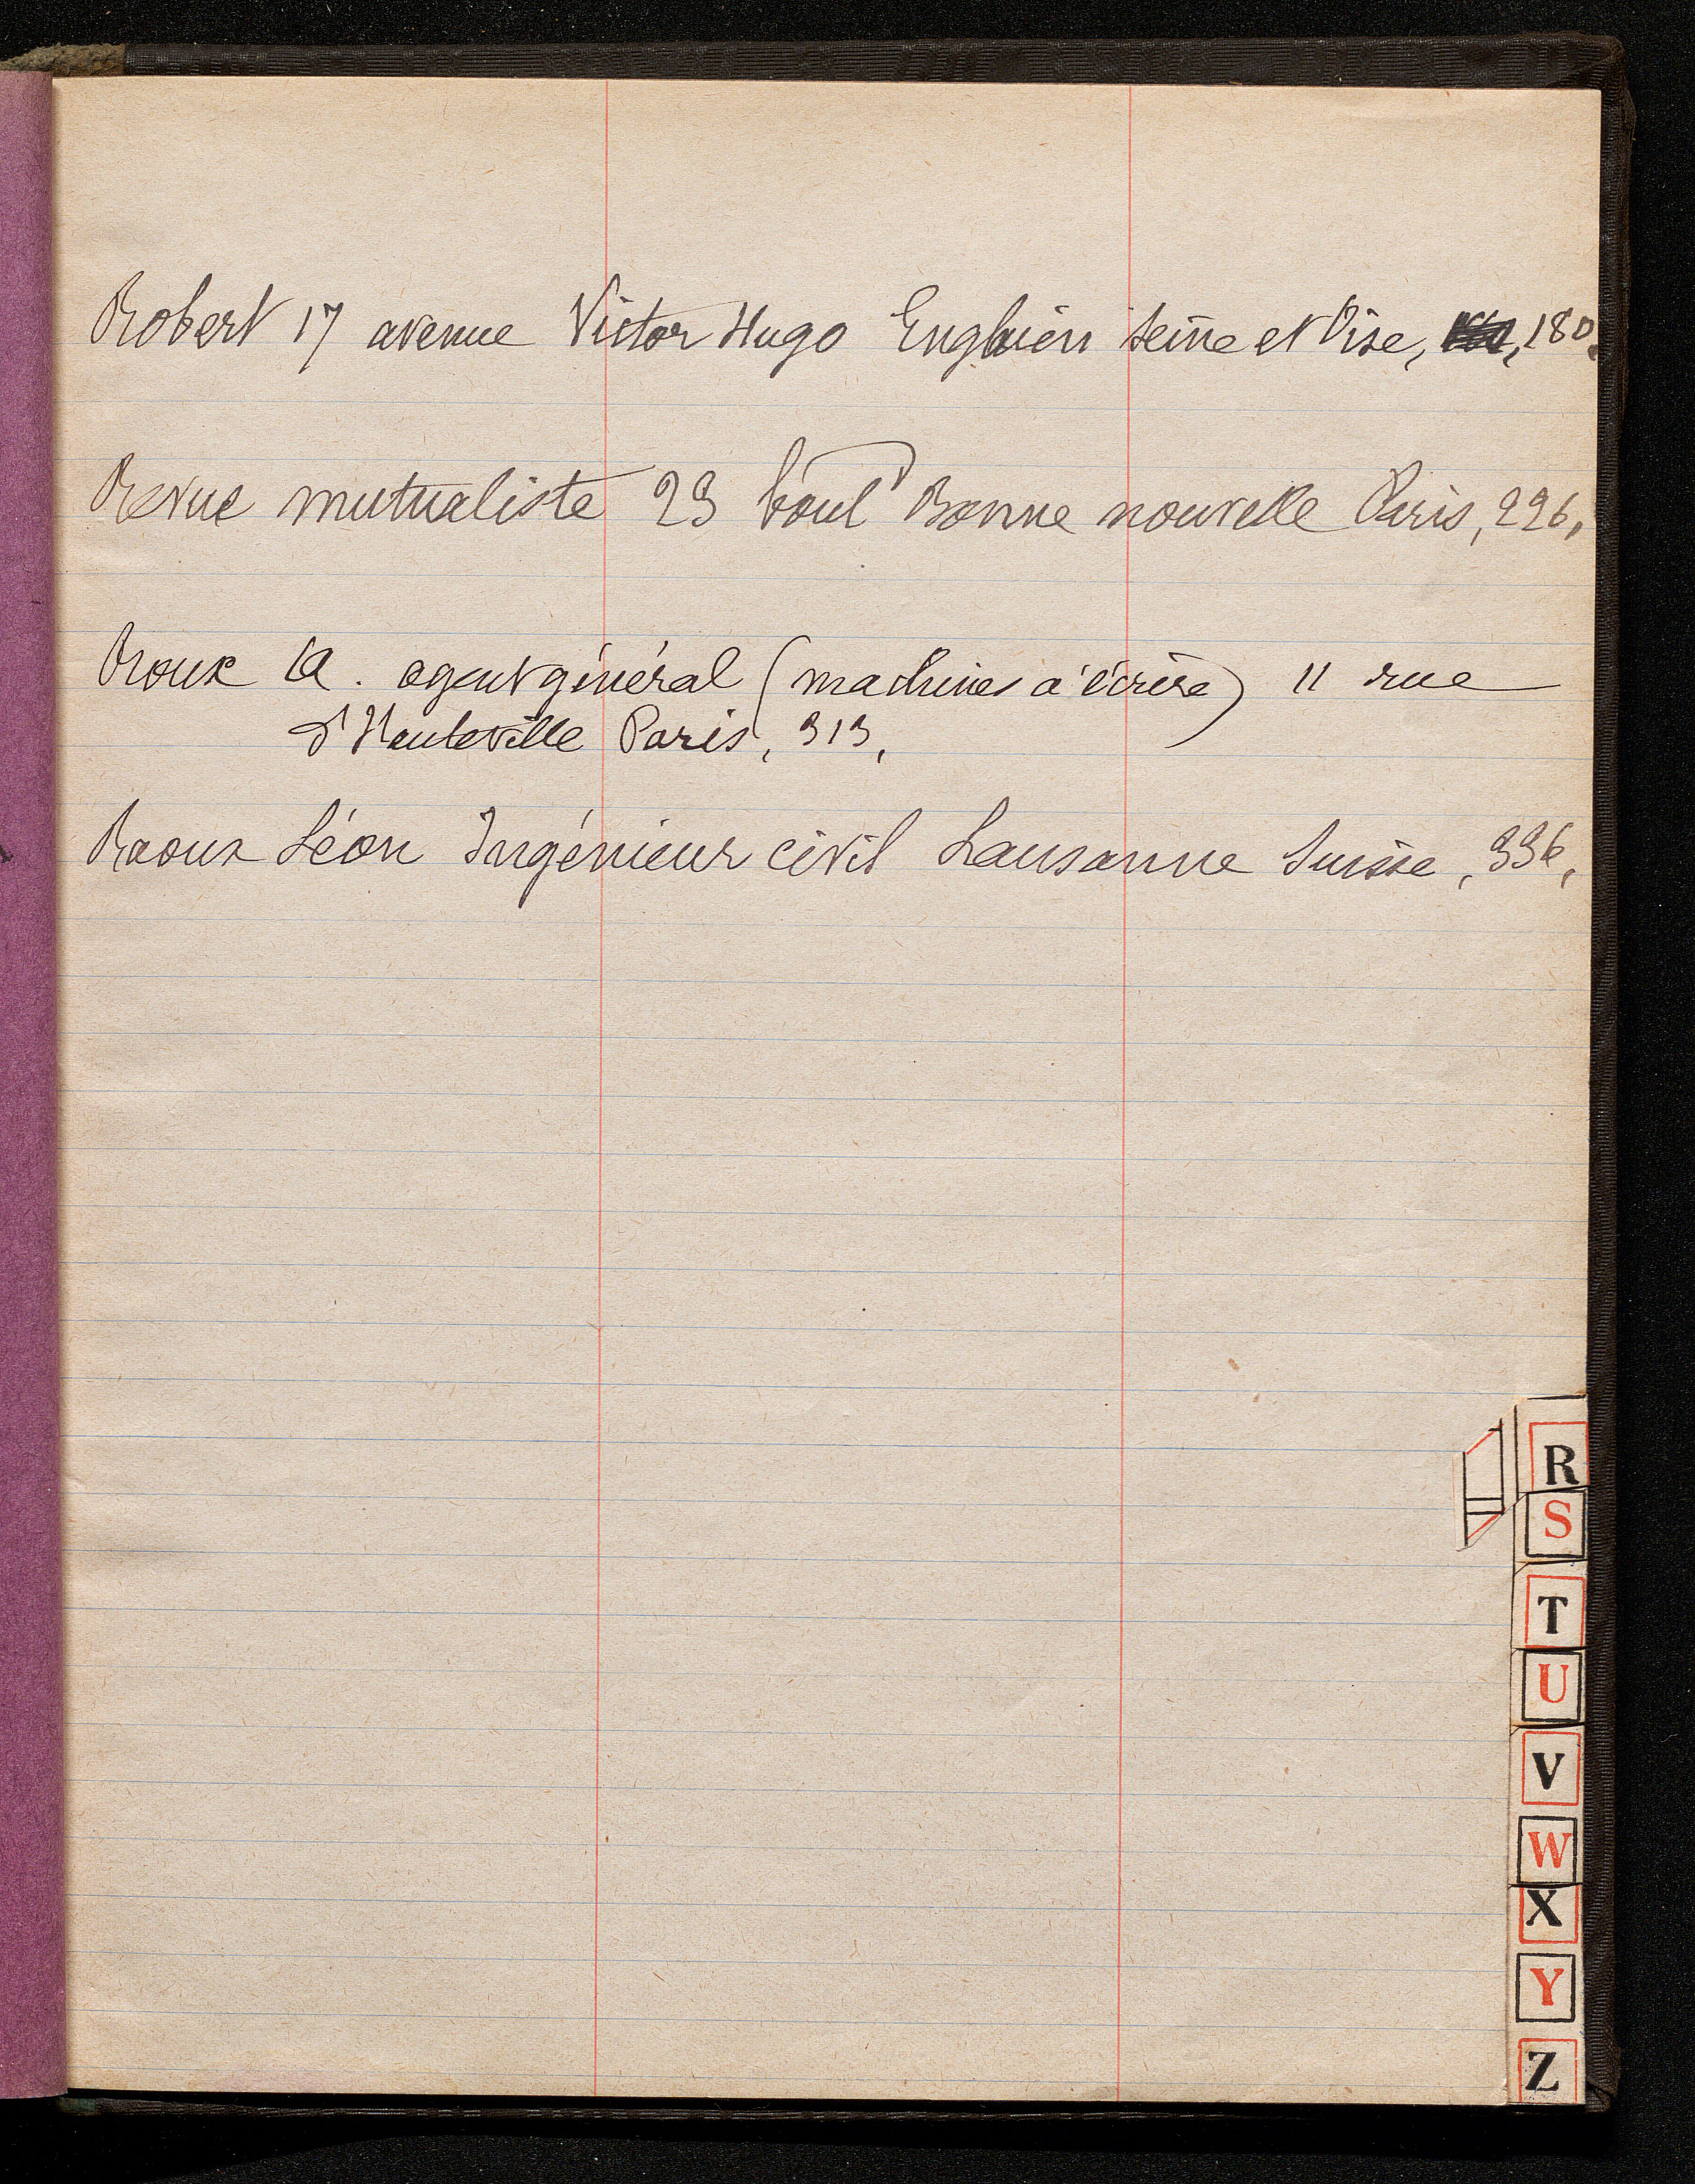 Robert 17 avenue Victor Hugo Enghien Seine et Oise, 180,
Revue mutualiste 23 boul^d Bonne nouvelle Paris, 226,
Roux A. agent général (machines à écrire) 11 rue
d'Hauteville Paris, 313,
Raoux Léon Ingénieur civil Lausanne Suisse, 336,
R
S
T
U
V
W
X
Y
Z